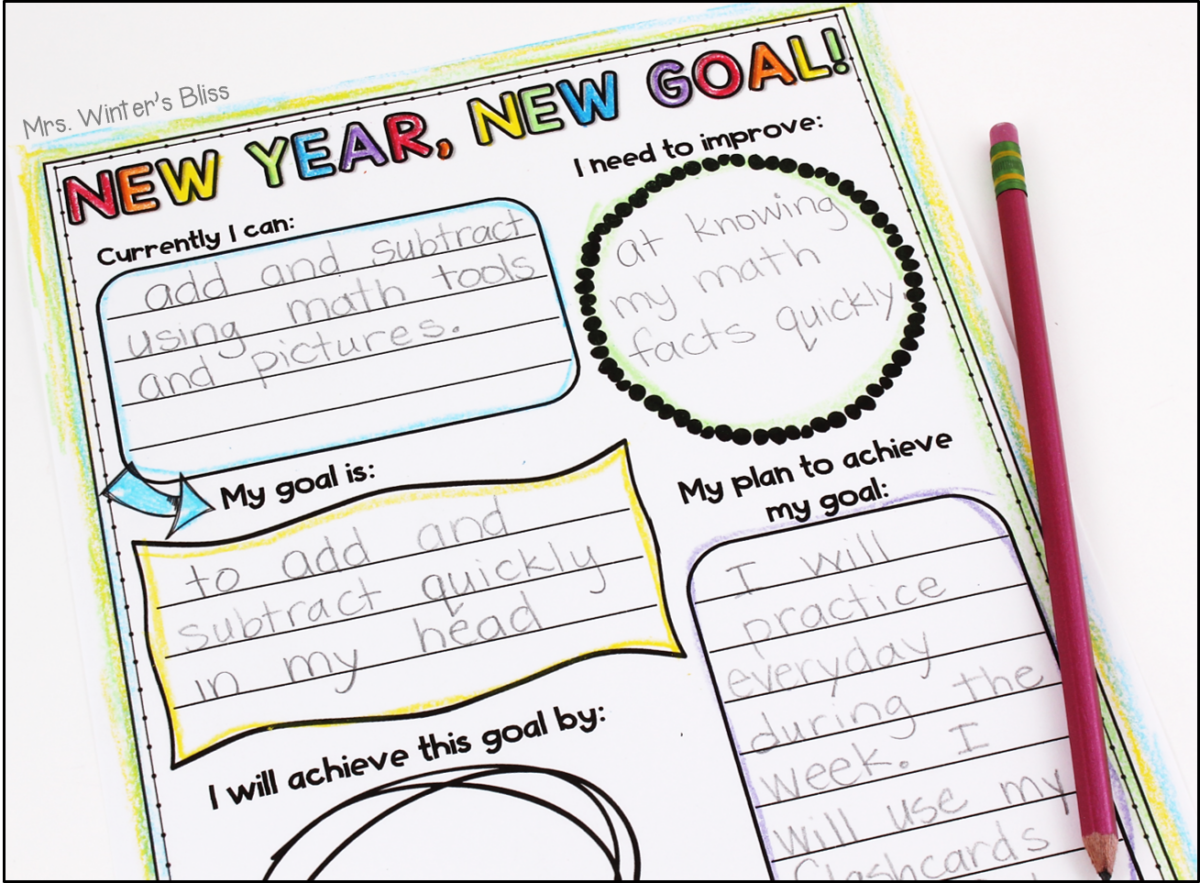 Mrs. Winter's Bliss
NEW YEAR, NEW GOAL!
Currently I can:
add and subtract
using math tools
and pictures.
I need to improve:
at knowing
my math
facts quickly.
My goal is:
to add and
subtract quickly
in my head
My plan to achieve
my goal:
I will
practice
everyday
during the
week. I
will use my
flashcards
I will achieve this goal by: